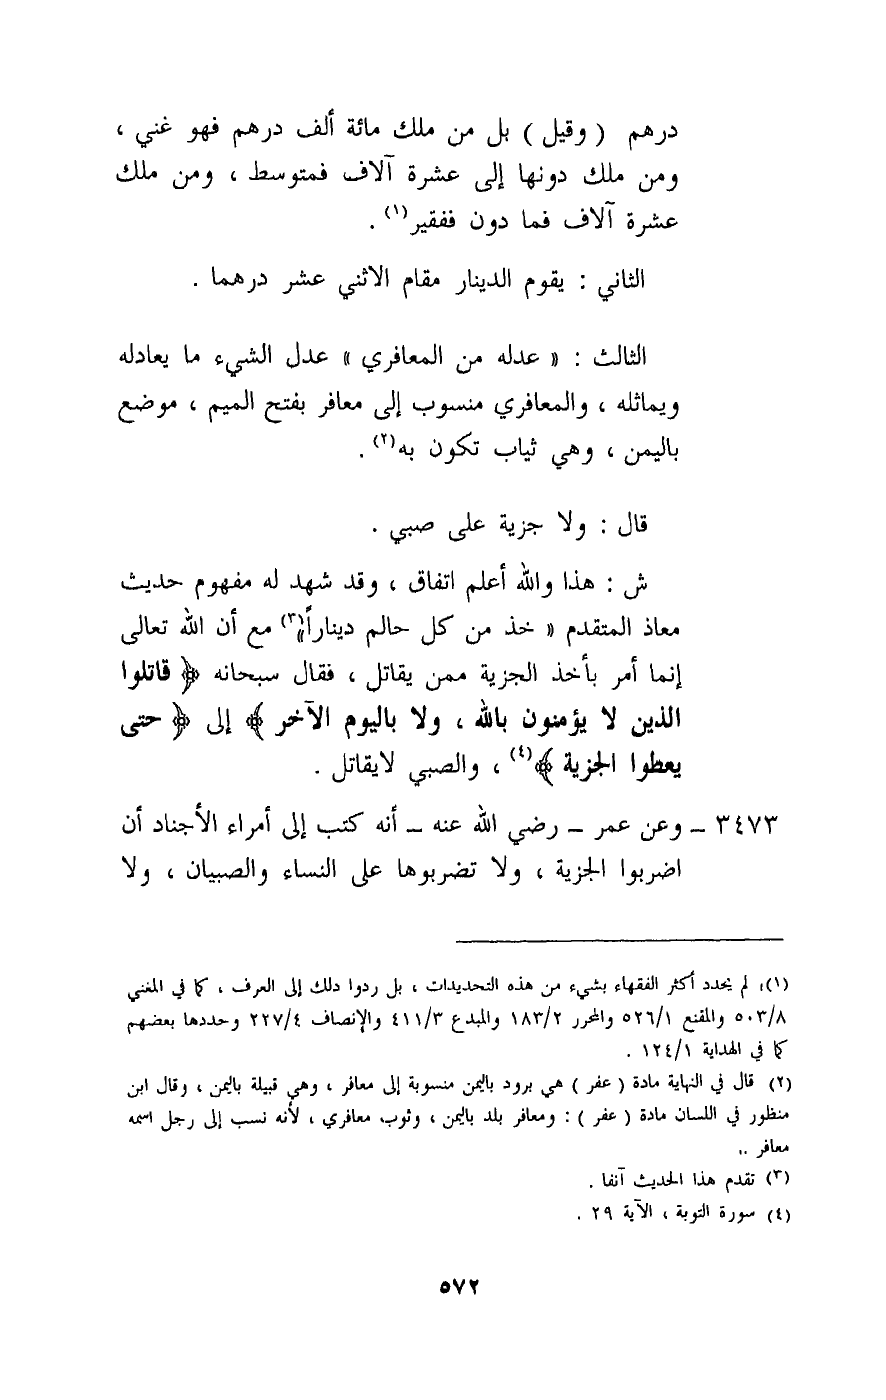 درهم ( وقيل ) بل من ملك مائة ألف درهم فهو غني ،
ومن ملك دونها إلى عشرة آلاف فمتوسط ، ومن ملك
عشرة آلاف فما دون ففقير(١) .
الثاني : يقوم الدينار مقام الاثني عشر درهما .
الثالث : « عدله من المعافري » عدل الشيء ما يعادله
ويماثله ، والمعافري منسوب إلى معافر بفتح الميم ، موضع
باليمن ، وهي ثياب تكون به(٢) .
قال : ولا جزية على صبي .
ش : هذا والله أعلم اتفاق ، وقد شهد له مفهوم حديث
معاذ المتقدم « خذ من كل حالم ديناراً»(٣) مع أن الله تعالى
إنما أمر بأخذ الجزية ممن يقاتل ، فقال سبحانه ﴿ قاتلوا
الذين لا يؤمنون بالله ، ولا باليوم الآخر ﴾ إلى ﴿ حتى
يعطوا الجزية ﴾(٤) ، والصبي لايقاتل .
٣٤٧٣ ــ وعن عمر ــ رضي الله عنه ــ أنه كتب إلى أمراء الأجناد أن
اضربوا الجزية ، ولا تضربوها على النساء والصبيان ، ولا
(١) لم يحدد أكثر الفقهاء بشيء من هذه التحديدات ، بل ردوا ذلك إلى العرف ، كما في المغني
٥٠٣/٨ والمقنع ٥٢٦/١ والمحرر ١٨٣/٢ والمبدع ٤١١/٣ والإنصاف ٢٢٧/٤ وحددها بعضهم
كما في الهداية ١٢٤/١ .
(٢) قال في النهاية مادة ( عفر ) هي برود باليمن منسوبة إلى معافر ، وهي قبيلة باليمن ، وقال ابن
منظور في اللسان مادة ( عفر ) : ومعافر بلد باليمن ، وثوب معافري ، لأنه نسب إلى رجل اسمه
معافر ..
(٣) تقدم هذا الحديث آنفا .
(٤) سورة التوبة ، الآية ٢٩ .
٥٧٢